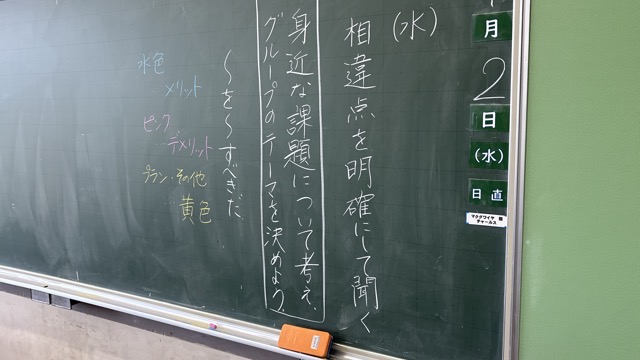 月
2
日
(水)
日直
マクダワイヤ
チャールス
(水)
相違点を明確にして聞く
身近な課題について考え、
グループのテーマを決めよう。
〜を〜すべきだ。
水色
メリット
ピンク
デメリット
プラン・その他
黄色